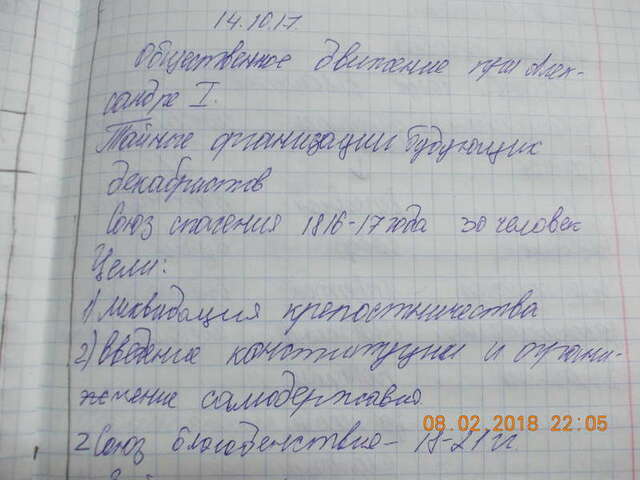 14.10.17.
Общественное движение при Алек-
сандре I.
Тайные организации будующих
декабристов
Союз спасения 1816-17 года 30 человек
Цели:
1) ликвидация крепостничества
2) введение конституции и ограни-
жение самодержавия
2 Союз благоденствия - 18-21 гг
08.02.2018 22:05